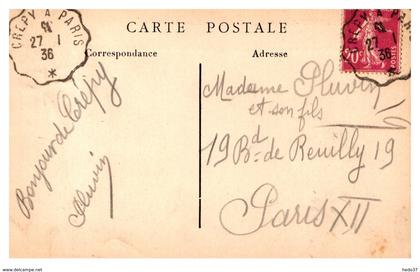 CREPY A PARIS
27 - 1
36
*
CARTE POSTALE
Correspondance
Adresse
CREPY A PARIS
27 - 1
36
*
20c
POSTES
Bonjour de Crépy
Madame Pluvin
et son fils
19 Bd. de Reuilly 19
Paris XII
hedo37